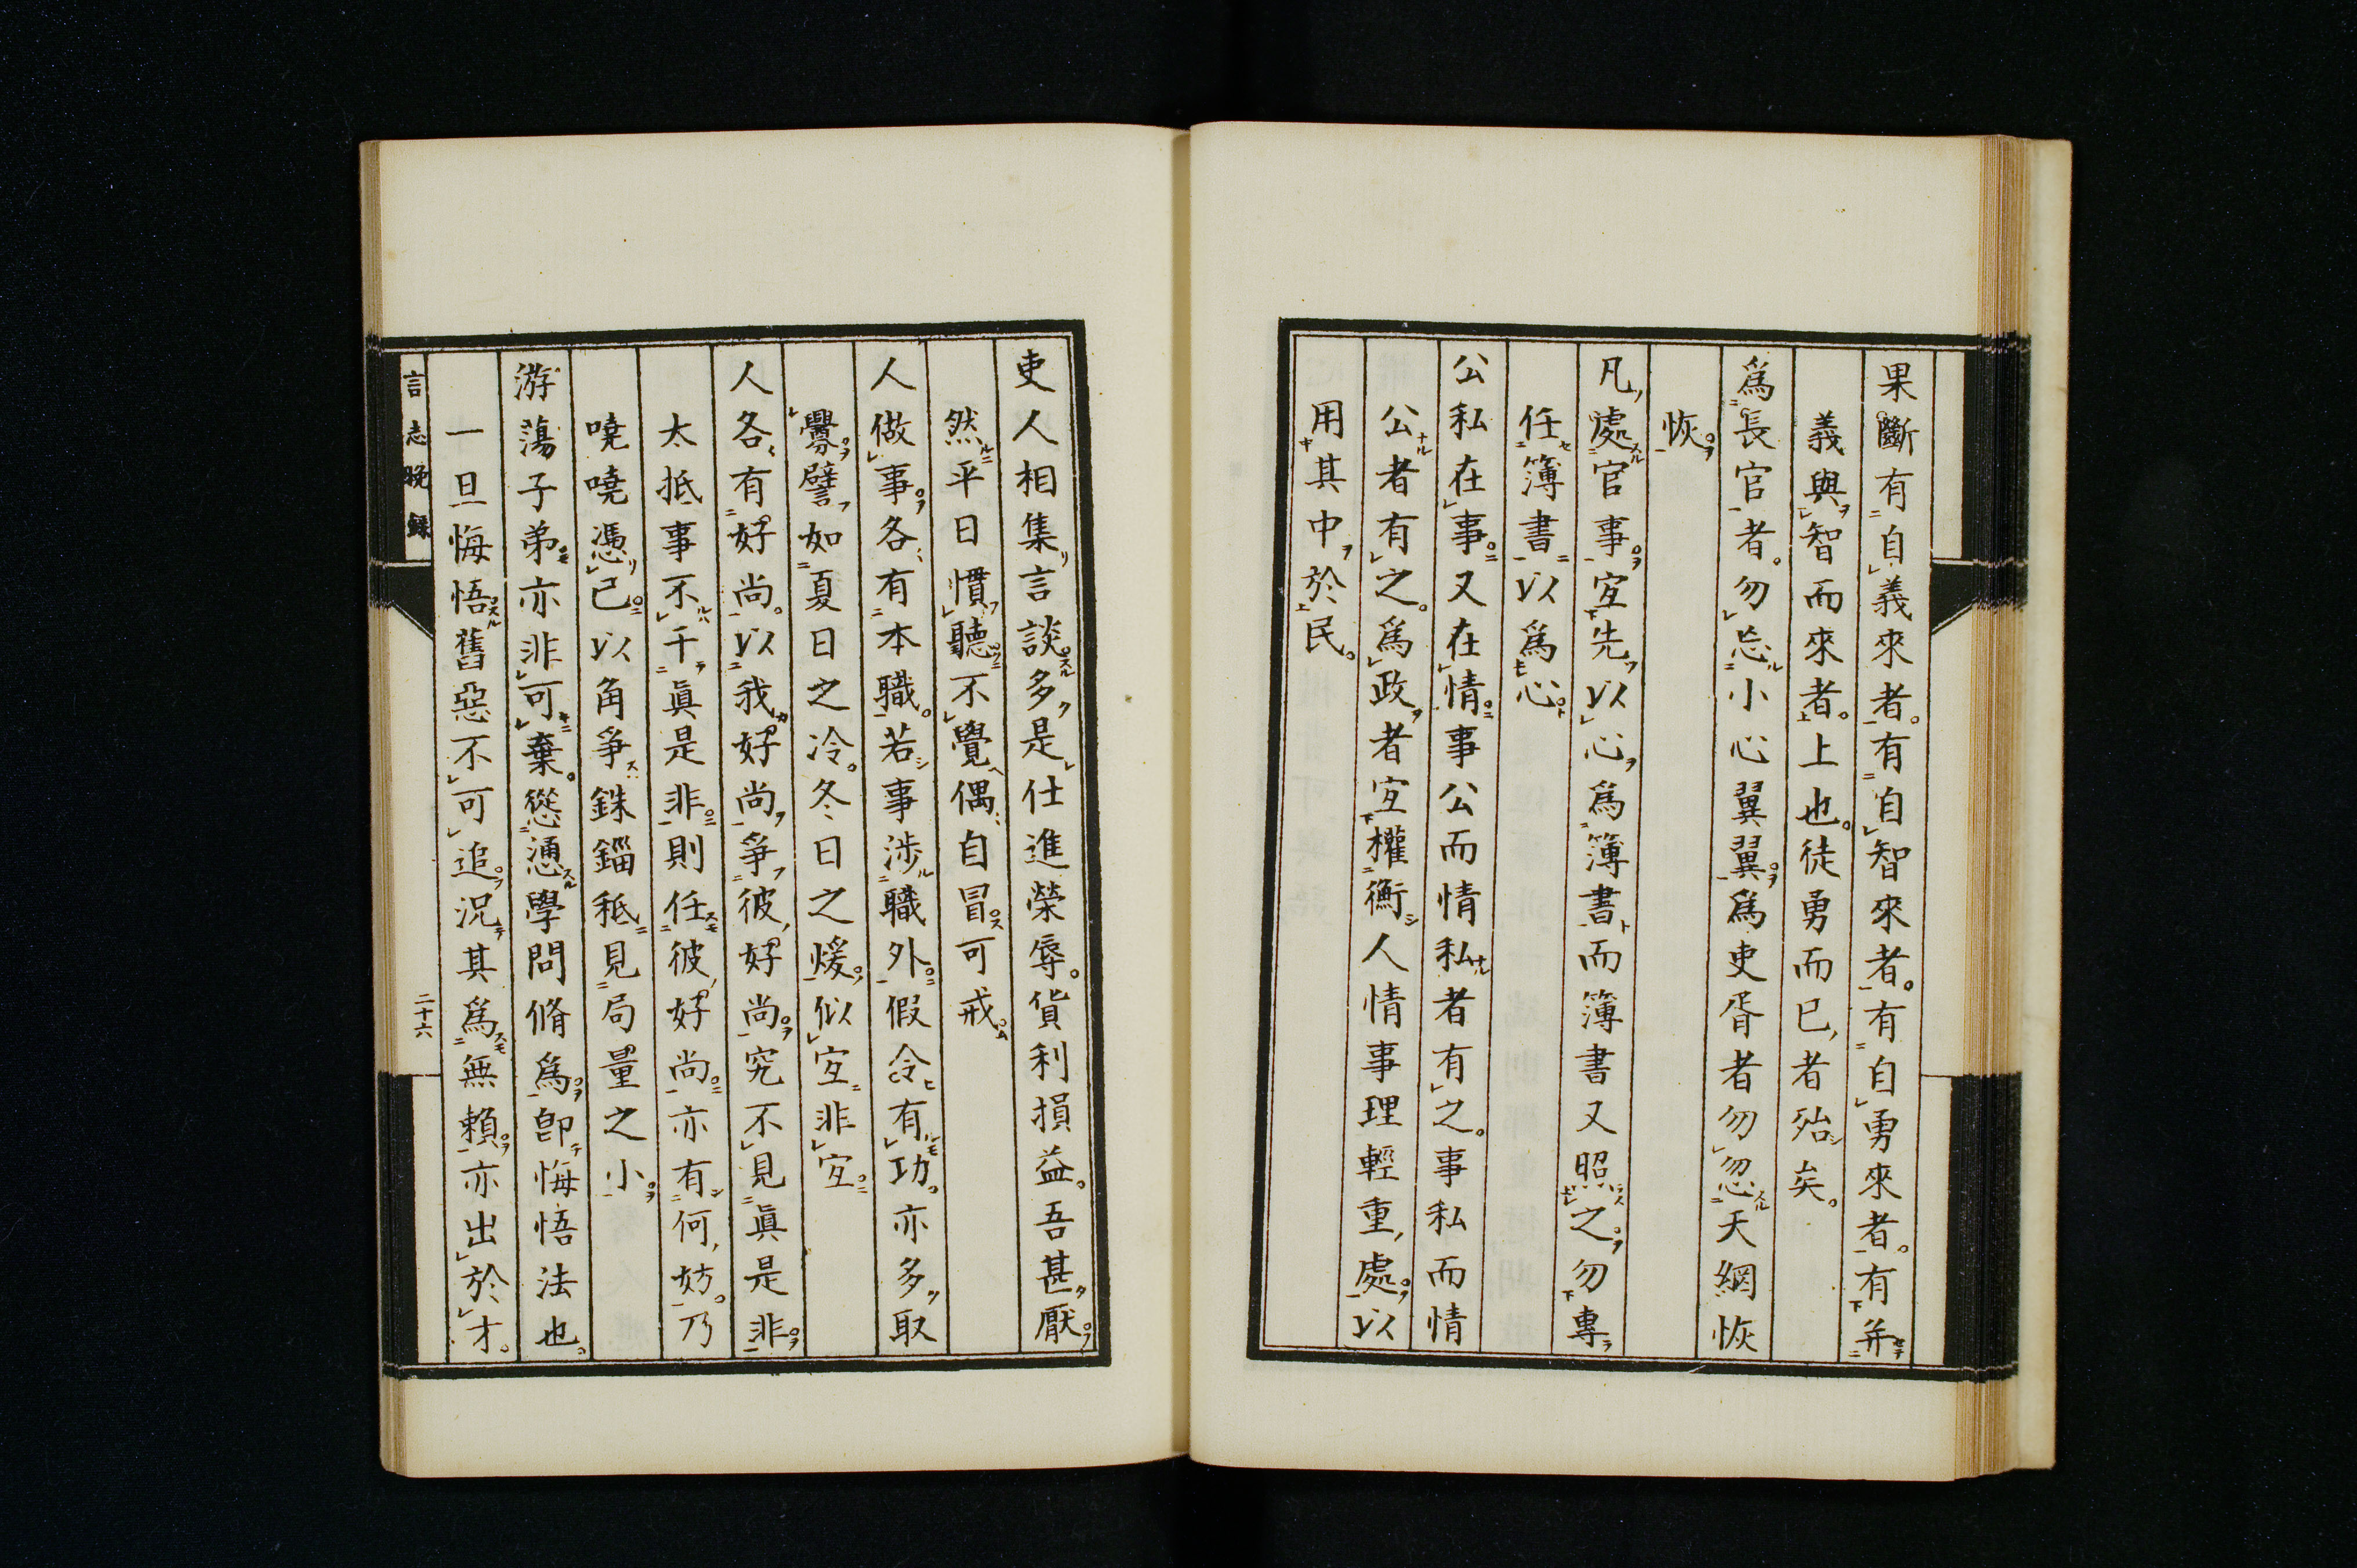 果斷有自義來者。有自智來者。有自勇來者。有并
義與智而來者。上也。徒勇而已者殆矣。
爲長官者。勿忘小心翼翼。爲吏胥者勿忽天網恢
恢。
凡處官事。宜先以心爲簿書而簿書又照之。勿專
任簿書以爲心。
公私在事。又在情。事公而情私者有之。事私而情
公者有之。爲政者宜權衡人情事理輕重處。以
用其中於民。
吏人相集言談多是仕進榮辱。貨利損益。吾甚厭。
然平日慣聽。不覺偶自冒。可戒。
人做事。各有本職。若事涉職外。假令有功。亦多取
釁。譬如夏日之冷。冬日之煖。似宜非宜。
人各有好尚。以我好尚爭彼好尚。究不見眞是非。
太抵事不干眞是非。則任彼好尚。亦有何妨。乃
嘵嘵憑己。以角爭銖錙秪見局量之小。
游蕩子弟亦非可棄。慫慂學問脩爲。卽悔悟法也。
一旦悔悟舊惡不可追。況其爲無賴。亦出於才。
言志晚錄
二十六